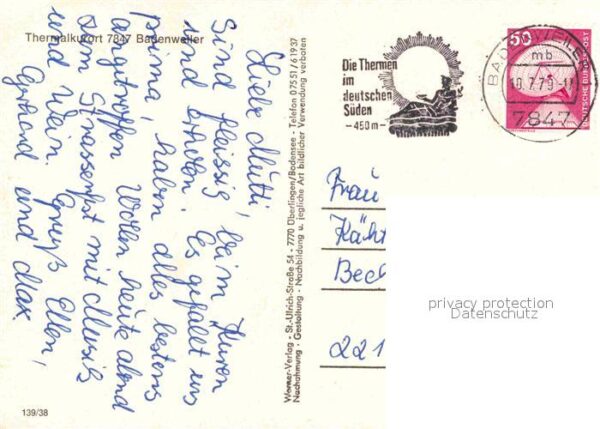 Thermalkurort 7847 Badenweiler
Liebe Mutti, beim Kuren
sind fleissig
und erholen. Es gefällt uns
prima, haben alles bestens
angetroffen. Wollen heute abend
zum Strassenfest mit Musik
und Wein. Gruß Ellen,
Gerhard und Max.
139/38
Werner-Verlag - St.-Ulrich-Straße 54 - 7770 Überlingen/Bodensee - Telefon 07551/61937
Nachahmung - Gestaltung - Nachbildung u. jegliche Art bildlicher Verwertung verboten
Die Thermen
im
deutschen
Süden
-450m-
BADENWEILER
mb
10.7.79
7847
50
DEUTSCHE BUNDESPOST
Frau
Käht
Bech
221
privacy protection
Datenschutz